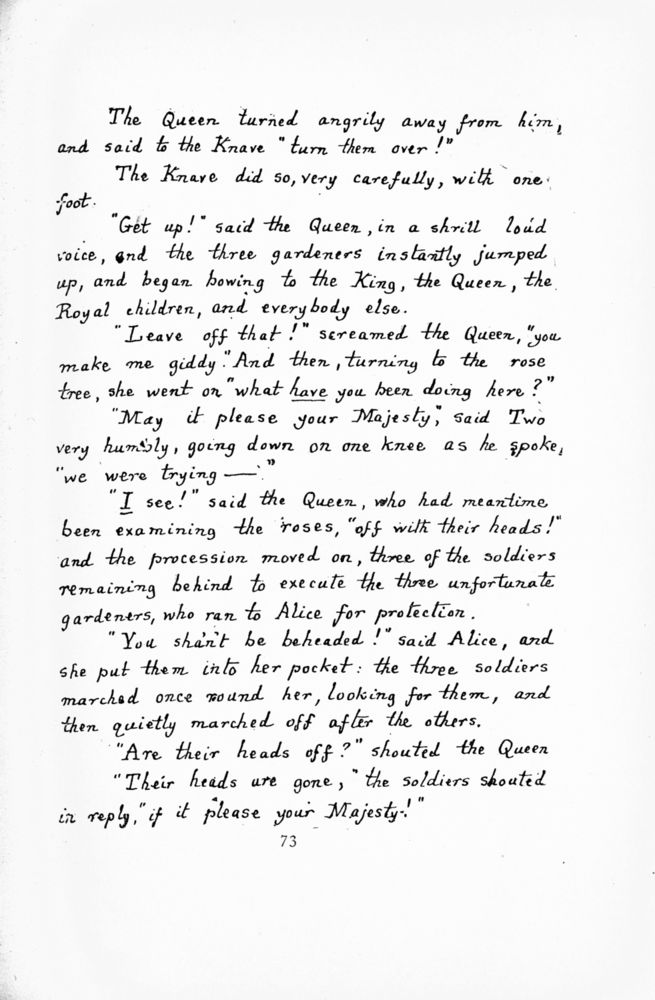 The Queen turned angrily away from him,
and said to the Knave "turn them over!"
The Knave did so, very carefully, with one
foot.
"Get up!" said the Queen, in a shrill loud
voice, and the three gardeners instantly jumped
up, and began bowing to the King, the Queen, the
Royal children, and everybody else.
"Leave off that!" screamed the Queen, "you
make me giddy." And then, turning to the rose
tree, she went on "what have you been doing here?"
"May it please your Majesty," said Two
very humbly, going down on one knee as he spoke,
"we were trying —"
"I see!" said the Queen, who had meantime
been examining the roses, "off with their heads!"
and the procession moved on, three of the soldiers
remaining behind to execute the three unfortunate
gardeners, who ran to Alice for protection.
"You shan't be beheaded!" said Alice, and
she put them into her pocket: the three soldiers
marched once round her, looking for them, and
then quietly marched off after the others.
"Are their heads off?" shouted the Queen
"Their heads are gone," the soldiers shouted
in reply, "if it please your Majesty!"
73